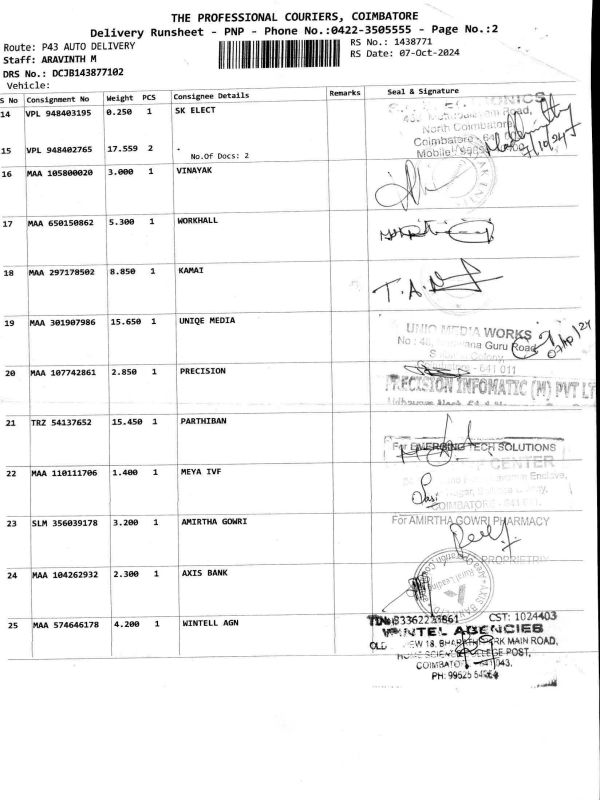 THE PROFESSIONAL COURIERS, COIMBATORE
Delivery Runsheet - PNP - Phone No.:0422-3505555 - Page No.:2
Route: P43 AUTO DELIVERY
RS No.: 1438771
Staff: ARAVINTH M
RS Date: 07-Oct-2024
DRS No.: DCJB143877102
Vehicle:
S No Consignment No Weight PCS Consignee Details Remarks Seal & Signature
14 VPL 948403195 0.250 1 SK ELECT
Road,
North Coimbatore
Coimbatore
Mobile
7/10/24
15 VPL 948402765 17.559 2 .
No.Of Docs: 2
16 MAA 105800020 3.000 1 VINAYAK
17 MAA 650150862 5.300 1 WORKHALL
18 MAA 297178502 8.850 1 KAMAI
T.A.
19 MAA 301907986 15.650 1 UNIQE MEDIA
UNIQ MEDIA WORKS
Guru Road
Colony,
641 011
20 MAA 107742861 2.850 1 PRECISION
PRECISION INFOMATIC (M) PVT LT
21 TRZ 54137652 15.450 1 PARTHIBAN
For EMERGING TECH SOLUTIONS
22 MAA 110111706 1.400 1 MEYA IVF
CENTER
Enclave,
COIMBATORE
23 SLM 356039178 3.200 1 AMIRTHA GOWRI
For AMIRTHA GOWRI PHARMACY
PROPRIETRIX
24 MAA 104262932 2.300 1 AXIS BANK
AXIS BANK
25 MAA 574646178 4.200 1 WINTELL AGN
CST: 1024403
WINTEL AGENCIES
OLD NEW 18, BHARATHI PARK MAIN ROAD,
HOME SCIENCE COLLEGE POST,
COIMBATORE - 641 043.
PH: 99625